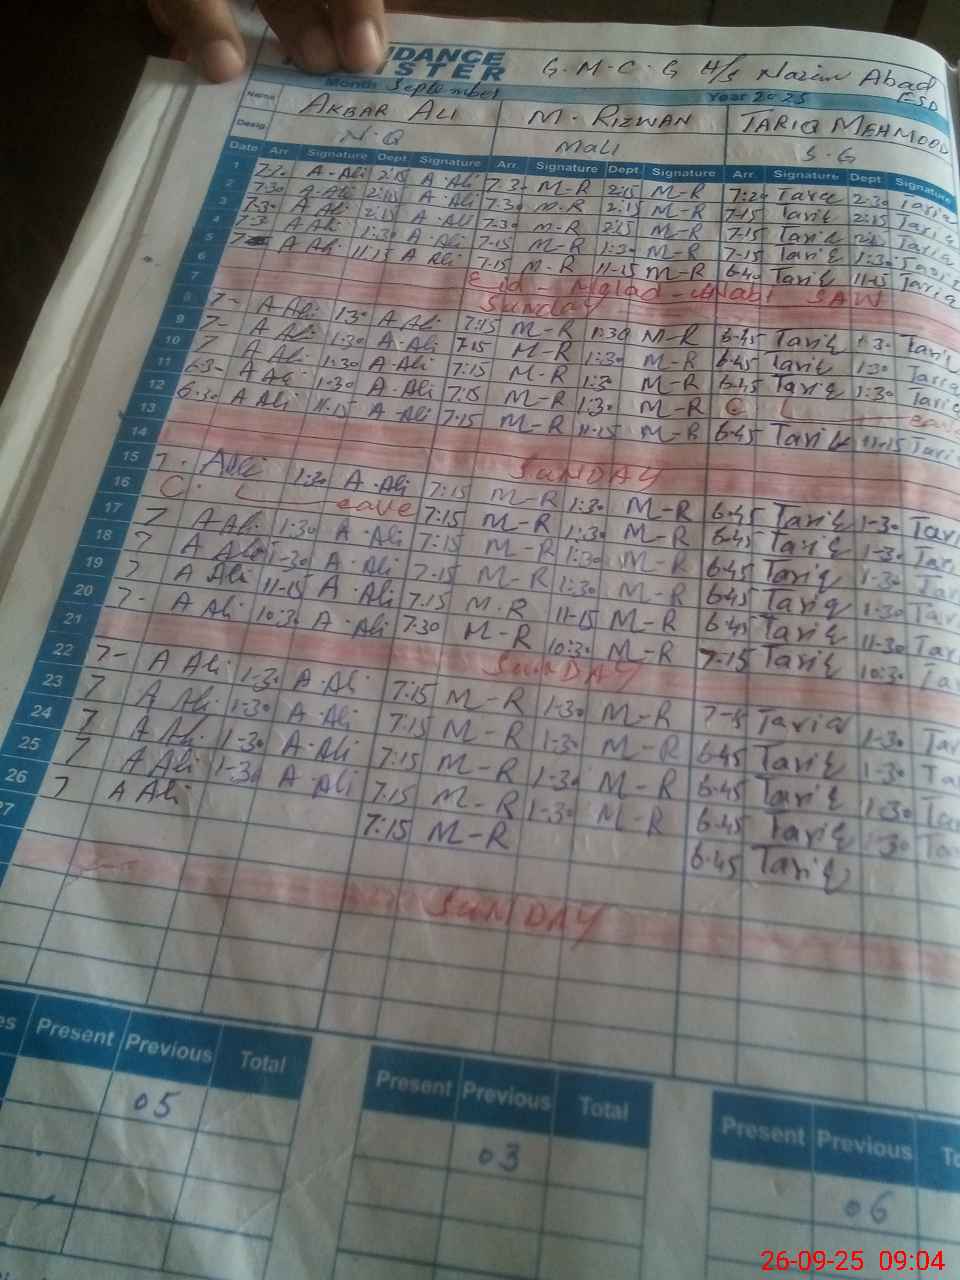 G.M.C.G H/S Nazim Abad FSD
Month September Year 2025
Name AKBAR ALI M-RIZWAN TARIQ MEHMOOD
Desig. N.Q Mali S.G
Date Arr. Signature Dept. Signature Arr. Signature Dept Signature Arr. Signature Dept Signature
1 A-Ali 2:15 A.Ali 7:30 M-R 2:15 M-R 7:20 Tariq 2:30 Tariq
2 7:30 A-Ali 2:15 A.Ali 7:30 M-R 2:15 M-R 7-15 Tariq 2:15 Tariq
3 7-30 A Ali 2:15 A.Ali 7:30 M-R 2:15 M-R 7-15 Tariq Tariq
4 7-3 A Ali 1:30 A.Ali 7-15 M-R 1:30 M-R 7-15 Tariq 1:30 Tariq
5 A Ali 11:15 A Ali 7:15 M-R 11-15 M-R 6-40 Tariq 11-15 Tariq
6 Eid-Milad-Nabi SAW
7 Sunday
8 7- A Ali 1:30 A Ali 7:15 M-R 1:30 M-R 6-45 Tariq 1:30 Tariq
9 7- A Ali 1:30 A.Ali 7:15 M-R 1:30 M-R 6-45 Tariq 1:30 Tariq
10 7 A Ali 1:30 A-Ali 7:15 M-R 1:30 M-R 6-45 Tariq 1:30 Tariq
11 6-3- A Ali 1-30 A-Ali 7:15 M-R 1:30 M-R C. Leave
12 6:30 A Ali 11-15 A-Ali 7-15 M-R 11-15 M-R 6-45 Tariq 11-15 Tari
13
14 SUNDAY
15 7- A Ali 1:30 A.Ali 7:15 M-R 1:30 M-R 6-45 Tariq 1-30 Tari
16 C. Leave 7:15 M-R 1:30 M-R 6-45 Tariq 1-30 Tar
17 7 A Ali 1:30 A.Ali 7:15 M-R 1:30 M-R 6-45 Tariq 1-30 Tar
18 7 A Ali 1-30 A.Ali 7-15 M-R 1:30 M-R 6-45 Tariq 1:30 Tar
19 7 A Ali 11-15 A.Ali 7:15 M-R 11-15 M-R 6-45 Tariq 11-30 Tar
20 7- A Ali 10:30 A.Ali 7:30 M-R 10:30 M-R 7-15 Tariq 10:30 Tar
21 SUNDAY
22 7- A Ali 1-30 A.Ali 7:15 M-R 1-30 M-R Tariq 1-30 Tar
23 7 A Ali 1-30 A.Ali 7:15 M-R 1-30 M-R 6-45 Tariq 1-30 Ta
24 7 A Ali 1-30 A.Ali 7:15 M-R 1-30 M-R 6-45 Tariq 1:30 Ta
25 7 A Ali 1-30 A.Ali 7:15 M-R 1-30 M-R 6-45 Tariq 1:30 Ta
26 7 A Ali 7:15 M-R 6-45 Tariq
27
SUNDAY
Present Previous Total Present Previous Total Present Previous
05 03 06
26-09-25 09:04